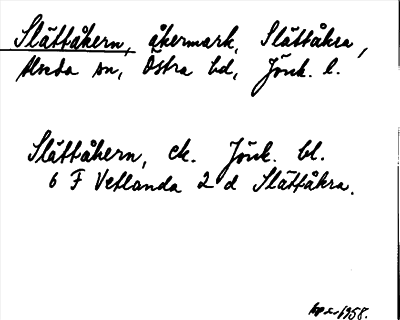 Slättåkern, åkermark, Slättåkra,
Alseda sn, Östra hd, Jönk. l.
Slättåkern, ek. Jönk. bl.
6 F Vetlanda 2 d Slättåkra.
1958.